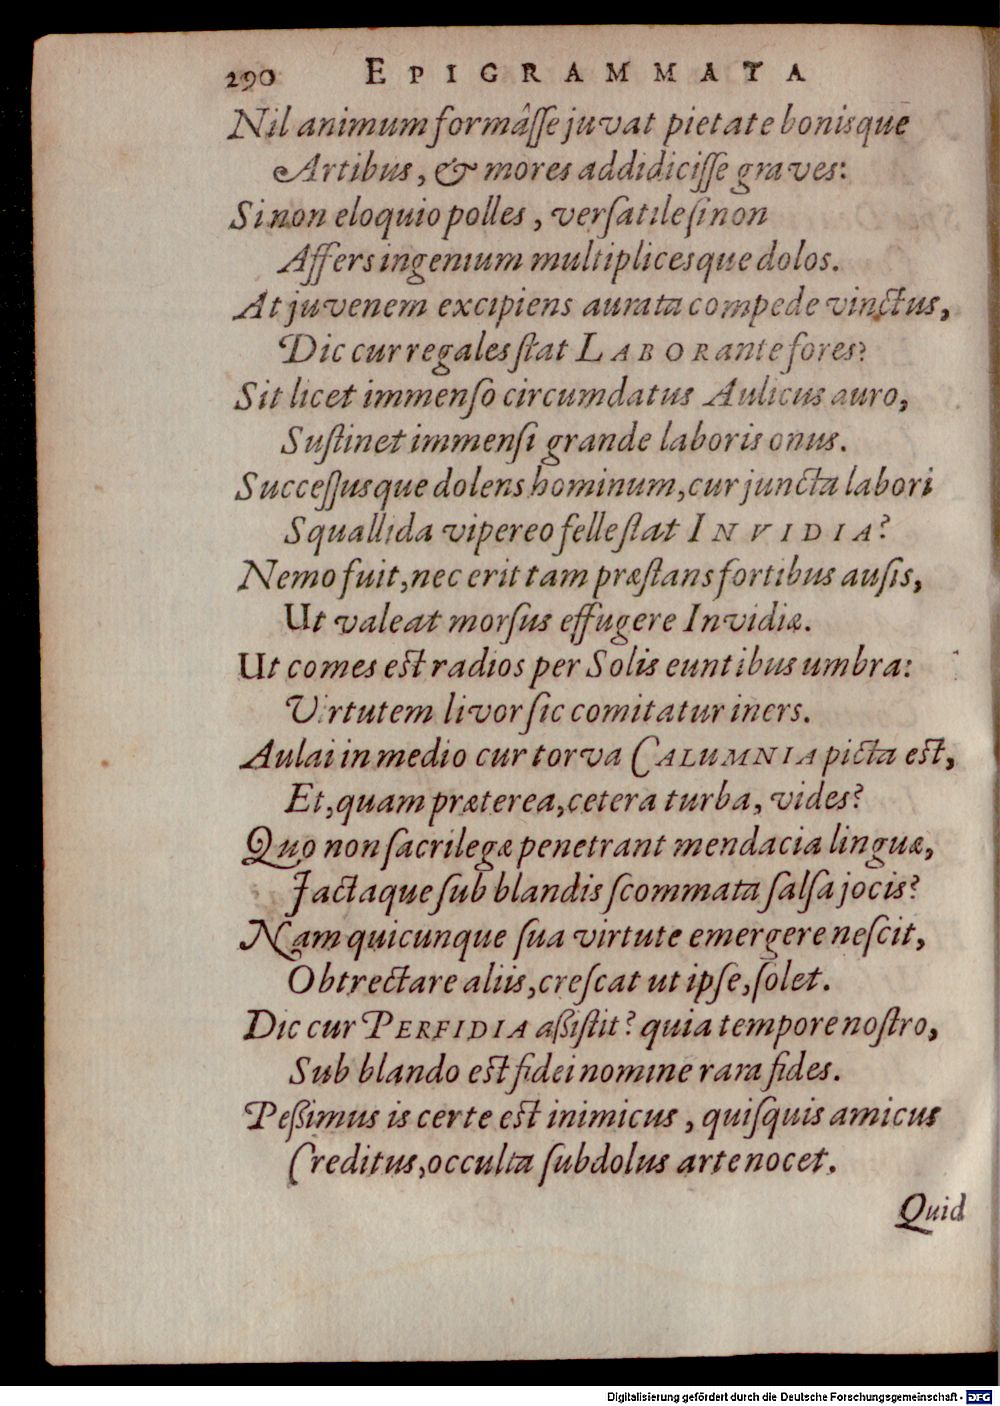 290 EPIGRAMMATA
Nil animum formâsse juvat pietate bonisque
Artibus, & mores addidicisse graves:
Si non eloquio polles, versatile si non
Affers ingenium multiplicesque dolos.
At juvenem excipiens aurata compede vinctus,
Dic cur regales stat LABOR ante fores?
Sit licet immenso circumdatus Aulicus auro,
Sustinet immensi grande laboris onus.
Successusque dolens hominum, cur juncta labori
Squallida vipereo felle stat INVIDIA?
Nemo fuit, nec erit tam præstans fortibus ausis,
Ut valeat morsus effugere Invidiæ.
Ut comes est radios per Solis euntibus umbra:
Virtutem livor sic comitatur iners.
Aulai in medio cur torva CALUMNIA picta est,
Et, quam præterea, cetera turba, vides?
Quo non sacrilegæ penetrant mendacia linguæ,
Jactaque sub blandis scommata salsa jocis?
Nam quicunque sua virtute emergere nescit,
Obtrectare aliis, crescat ut ipse, solet.
Dic cur PERFIDIA assistit? quia tempore nostro,
Sub blando est fidei nomine rara fides.
Pessimus is certe est inimicus, quisquis amicus
Creditus, occulta subdolus arte nocet.
Quid
Digitalisierung gefördert durch die Deutsche Forschungsgemeinschaft - DFG